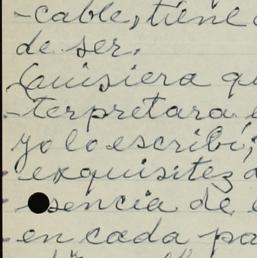 -cable, tiene
de ser.
Quisiera qu
-terpretara e
yo lo escribí;
exquisitez d
esencia de e
en cada pa